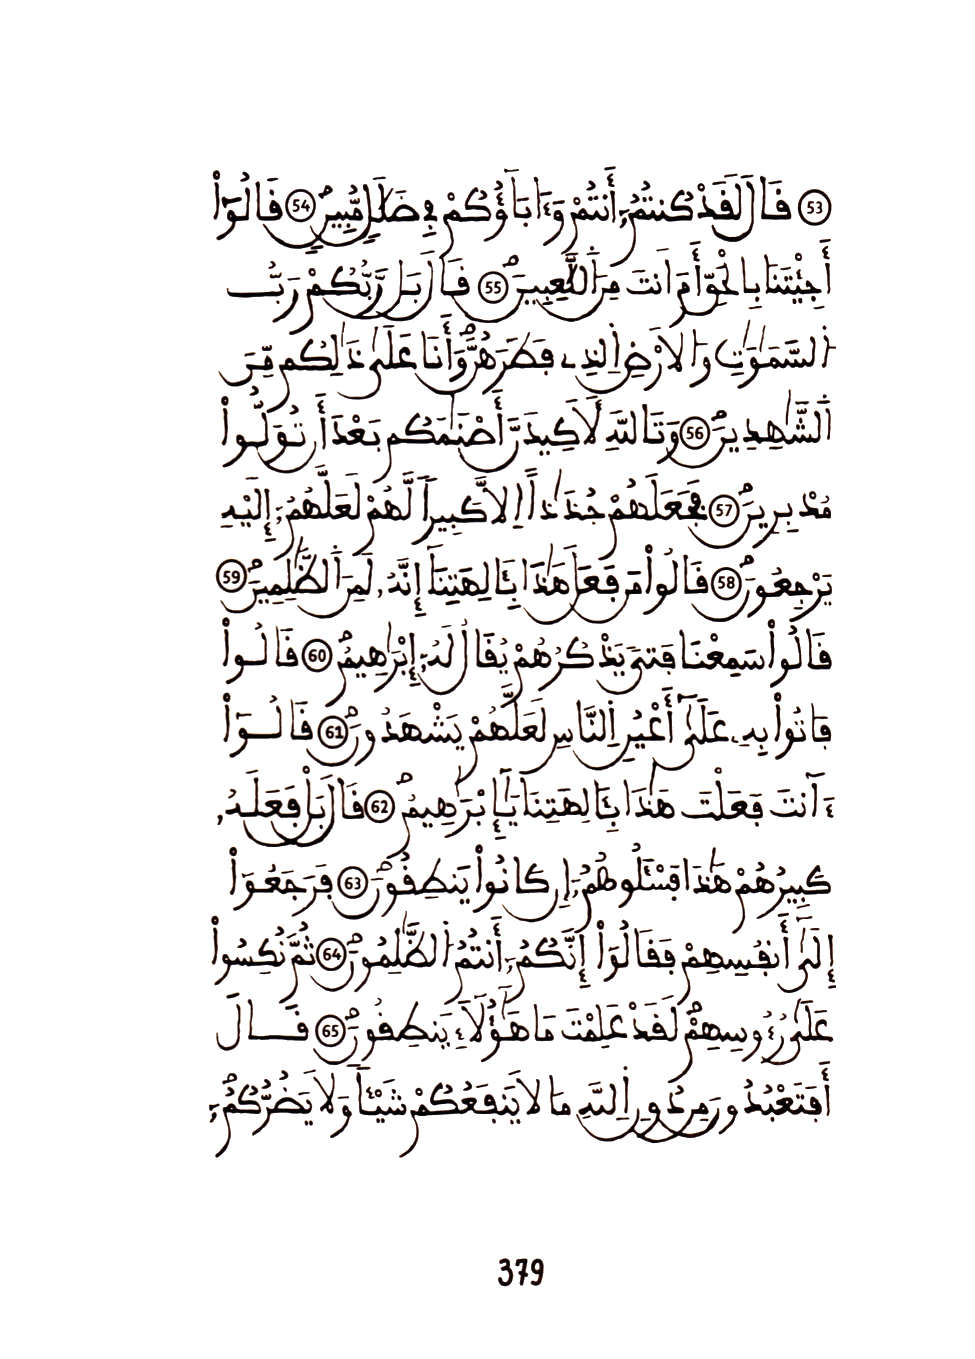 (53) قَالَ لَقَدْ كُنتُمُۥٓ أَنتُمْ وَءَابَآؤُكُمْ فِے ضَلَٰلٖ مُّبِينٖ (54) قَالُوٓاْ
أَجِئْتَنَا بِالْحَقِّ أَمَ اَنتَ مِنَ اَللَّٰعِبِينَ (55) قَالَ بَل رَّبُّكُمْ رَبُّ
اُلسَّمَٰوَٰتِ وَالَارْضِ اِلذِے فَطَرَهُنَّ وَأَنَا عَلَىٰ ذَٰلِكُم مِّنَ
اَلشَّٰهِدِينَ (56) وَتَاللَّهِ لَأَكِيدَنَّ أَصْنَٰمَكُم بَعْدَ أَن تُوَلُّواْ
مُدْبِرِينَ (57) فَجَعَلَهُمْ جُذَٰذاً اِلَّا كَبِيراٗ لَّهُمْ لَعَلَّهُمُۥٓ إِلَيْهِ
يَرْجِعُونَ (58) قَالُواْ مَن فَعَلَ هَٰذَا بِـَٔالِهَتِنَآ إِنَّهُۥ لَمِنَ اَلظَّٰلِمِينَ (59)
قَالُواْ سَمِعْنَا فَتىٗ يَذْكُرُهُمْ يُقَالُ لَهُۥٓ إِبْرَٰهِيمُ (60) قَالُواْ
فَاتُواْ بِهِۦ عَلَىٰٓ أَعْيُنِ اِلنَّاسِ لَعَلَّهُمْ يَشْهَدُونَ (61) قَالُوٓاْ
ءَآنتَ فَعَلْتَ هَٰذَا بِـَٔالِهَتِنَا يَٰٓإِبْرَٰهِيمُ (62) قَالَ بَلْ فَعَلَهُۥ
كَبِيرُهُمْ هَٰذَا فَسْـَٔلُوهُمُۥٓ إِن كَانُواْ يَنطِقُونَ (63) فَرَجَعُوٓاْ
إِلَىٰٓ أَنفُسِهِمْ فَقَالُوٓاْ إِنَّكُمُۥٓ أَنتُمُ اُلظَّٰلِمُونَ (64) ثُمَّ نُكِسُواْ
عَلَىٰ رُءُوسِهِمْ لَقَدْ عَلِمْتَ مَا هَٰٓؤُلَآءِ يَنطِقُونَ (65) قَالَ
أَفَتَعْبُدُونَ مِن دُونِ اِللَّهِ مَا لَا يَنفَعُكُمْ شَيْـٔاٗ وَلَا يَضُرُّكُمُۥٓ
379